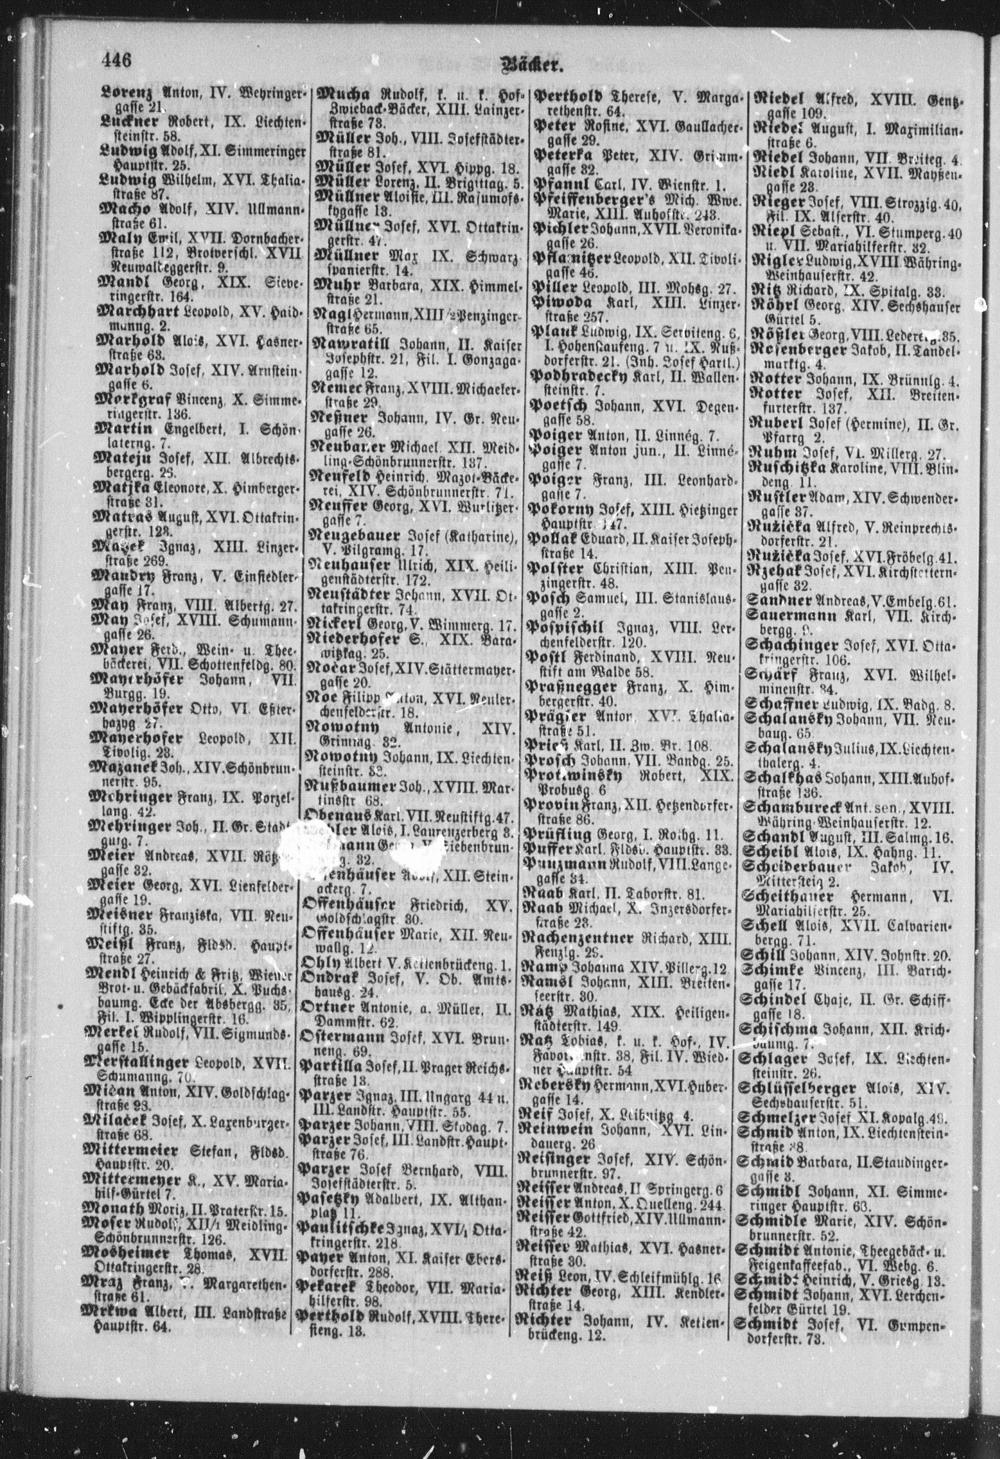 446
Bäcker.
Lorenz Anton, IV. Weyringer-
gasse 21.
Luckner Robert, IX. Liechten-
steinstr. 58.
Ludwig Adolf, XI. Simmeringer
Hauptstr. 25.
Ludwig Wilhelm, XVI. Thalia-
straße 87.
Macho Adolf, XIV. Ullmann-
straße 61.
Maly Emil, XVII. Dornbacher-
straße 112, Brotverschl. XVII.
Neuwaldeggerstr. 9.
Mandl Georg, XIX. Sieve-
ringerstr. 164.
Marchhart Leopold, XV. Haid-
manng. 2.
Marhold Alois, XVI. Hasner-
straße 63.
Marhold Josef, XIV. Arnstein-
gasse 6.
Markgraf Vincenz, X. Simme-
ringerstr. 136.
Martin Engelbert, I. Schön-
laterng. 7.
Mateju Josef, XII. Albrechts-
bergerg. 23.
Matjka Eleonore, X. Himberger-
straße 31.
Matras August, XVI. Ottakrin-
gerstr. 128.
Ignaz, XIII. Linzer-
straße 269.
Maudry Franz, V. Einsiedler-
gasse 17.
May Franz, VIII. Albertg. 27.
May Josef, XVIII. Schumann-
gasse 26.
Mayer Ferd., Wein- u. Thee-
bäckerei, VII. Schottenfeldg. 80.
Mayerhöfer Johann, VII.
Burgg. 19.
Mayerhöfer Otto, VI. Eßter-
hazyg 27.
Mayerhofer Leopold, XII.
Tivolig. 23.
Mazanek Joh., XIV. Schönbrun-
nerstr. 95.
Mehringer Franz, IX. Porzel-
lang. 42.
Mehringer Joh., II. Gr. Stadt-
gutg. 7.
Meier Andreas, XVII. Rötz-
gasse 32.
Meier Georg, XVI. Lienfelder-
gasse 19.
Meisner Franziska, VII. Neu-
stiftg. 35.
Meißl Franz, Fldsd. Haupt-
straße 27.
Mendl Heinrich & Fritz, Wiener
Brot- u. Gebäckfabrik, X. Puchs-
baumg. Ecke der Absbergg. 35,
Fil. I. Wipplingerstr. 16.
Merkel Rudolf, VII. Sigmunds-
gasse 15.
Merstallinger Leopold, XVII.
Schumanng. 70.
Mičan Anton, XIV. Goldschlag-
straße 93.
Milaček Josef, X. Laxenburger-
straße 68.
Mittermeier Stefan, Fldsd.
Hauptstr. 20.
Mittermeyer K., XV. Maria-
hilf-Gürtel 7.
Monath Moriz, II. Praterstr. 15.
Moser Rudolf, XII/1 Meidling-
Schönbrunnerstr. 126.
Mosheimer Thomas, XVII.
Ottakringerstr. 28.
Mraz Franz, Margarethen-
straße 61.
Mrkwa Albert, III. Landstraße
Hauptstr. 64.
Mucha Rudolf, k. u. k. Hof-
Zwieback-Bäcker, XIII. Lainzer-
straße 73.
Müller Joh., VIII. Josefstädter-
straße 81.
Müller Josef, XVI. Hippg. 18.
Müller Lorenz, II. Brigittag. 5.
Müllner Aloisie, III. Rasumofs-
kygasse 13.
Müllner Josef, XVI. Ottakrin-
gerstr. 47.
Müllner Max IX. Schwarz-
spanierstr. 14.
Muhr Barbara, XIX. Himmel-
straße 21.
Nagl Hermann, XIII/2 Penzinger-
straße 65.
Nawratill Johann, II. Kaiser
Josephstr. 21, Fil. I. Gonzaga-
gasse 12.
Nemec Franz, XVIII. Michaeler-
straße 29.
Neßner Johann, IV. Gr. Neu-
gasse 26.
Neubauer Michael XII. Meid-
ling-Schönbrunnerstr. 137.
Neufeld Heinrich. Mazot-Bäcke-
rei, XIV. Schönbrunnerstr. 71.
Neuffer Georg, XVI. Wurlitzer-
gasse 7.
Neugebauer Josef (Katharine),
V. Pilgramg. 17.
Neuhauser Ulrich, XIX. Heili-
genstädterstr. 172.
Neustädter Johann, XVII. Ot-
takringerstr. 74.
Nickerl Georg, V. Wimmerg. 17.
Niederhofer S., XIX. Bara-
witzkag. 25.
Nočar Josef, XIV. Stättermayer-
gasse 20.
Noe Filipp Anton, XVI. Neuler-
chenfelderstr. 18.
Nowotny Antonie, XIV.
Grimmg. 32.
Nowotny Johann, IX. Liechten-
steinstr. 53.
Nußbaumer Joh., XVIII. Mar-
tinsstr 68.
Obenaus Karl, VII. Neustiftg. 47.
Alois, I. Laurenzerberg 3.
Siebenbrun-
32.
XII. Stein-
ackerg. 7.
Offenhäuser Friedrich, XV.
Goldschlagstr. 30.
Offenhäuser Marie, XII. Neu-
wallg. 12.
Ohly Albert V. Kettenbrückeng. 1.
Ondrak Josef, V. Ob. Amts-
hausg. 24.
Ortner Antonie, a. Müller, II.
Dammstr. 62.
Ostermann Josef, XVI. Brun-
neng. 69.
Partilla Josef, II. Prager Reichs-
straße 13.
Parzer Ignaz, III. Ungarg 44 u.
III. Landstr. Hauptstr. 55.
Parzer Johann, VIII. Skodag. 7.
Parzer Josef, III. Landstr. Haupt-
straße 76.
Parzer Josef Bernhard, VIII.
Josefstädterstr. 5.
Pasetzky Adalbert, IX. Althan-
platz 11.
Paulitschke Ignaz, XVI/1 Otta-
kringerstr. 218.
Payer Anton, XI. Kaiser Ebers-
dorferstr. 288.
Pekarek Theodor, VII. Maria-
hilferstr. 98.
Perthold Rudolf, XVIII. There-
sieng. 13.
Perthold Therese, V. Marga-
rethenstr. 64.
Peter Rosine, XVI. Gaullacher-
gasse 29.
Peterka Peter, XIV. Grimm-
gasse 32.
Pfannl Carl, IV. Wienstr. 1.
Pfeiffenberger's Mich. Wwe.
Marie, XIII. Auhofstr. 243.
Pichler Johann, XVII. Veronika-
gasse 26.
Leopold, XII. Tivoli-
gasse 46.
Piller Leopold, III. Mohsg. 27.
Piwoda Karl, XIII. Linzer-
straße 257.
Plank Ludwig, IX. Serviteng. 6,
I. Hohenstaufeng. 7 u. IX. Nuß-
dorferstr. 21. (Inh. Josef Hartl.)
Podhradecky Karl, II. Wallen-
steinstr. 7.
Poetsch Johann, XVI. Degen-
gasse 58.
Poiger Anton, II. Linnég. 7.
Poiger Anton jun., II. Linné-
gasse 7.
Poiger Franz, III. Leonhard-
gasse 7.
Pokorny Josef, XIII. Hietzinger
Hauptstr. 147.
Pollak Eduard, II. Kaiser Joseph-
straße 14.
Polster Christian, XIII. Pen-
zingerstr. 48.
Posch Samuel, III. Stanislaus-
gasse 2.
Pospischil Ignaz, VIII. Ler-
chenfelderstr. 120.
Postl Ferdinand, XVIII. Neu-
stift am Walde 58.
Praßnegger Franz, X. Him-
bergerstr. 40.
Prägler Anton, XVI. Thalia-
straße 51.
Prieß Karl, II. Zw. Br. 108.
Prosch Johann, VII. Bandg. 25.
Protiwinsky Robert, XIX.
Probusg. 6
Provin Franz, XII. Hetzendorfer-
straße 86.
Prüfling Georg, I. Rothg. 11.
Puffer Karl, Fldsd. Hauptstr. 33.
Punzmann Rudolf, VIII. Lange-
gasse 34.
Raab Karl, II. Taborstr. 81.
Raab Michael, X. Inzersdorfer-
straße 23.
Rachenzentner Richard, XIII.
Fenzlg. 28.
Ramp Johanna XIV. Pillerg. 12
Ramsl Johann, XIII. Breiten-
seerstr. 30.
Rätz Mathias, XIX. Heiligen-
städterstr. 149.
Ratz Tobias, k. u. k. Hof-, IV.
Favoritenstr. 38, Fil. IV. Wied-
ner Hauptstr. 54
Rebersky Hermann, XVI. Huber-
gasse 14.
Reif Josef, X. Leibnitzg. 4.
Reinwein Johann, XVI. Lin-
dauerg. 26
Reisinger Josef, XIV. Schön-
brunnerstr. 97.
Reisser Andreas, II Springerg. 6
Reisser Anton, X. Quelleng. 244.
Reisser Gottfried, XIV. Ullmann-
straße 42.
Reisser Mathias, XVI. Hasner-
straße 30.
Reiß Leon, IV. Schleifmühlg. 16
Richter Georg, XIII. Kendler-
straße 14.
Richter Johann, IV. Ketten-
brückeng. 12.
Riedel Alfred, XVIII. Gentz-
gasse 109.
Riedel August, I. Maximilian-
straße 6.
Riedel Johann, VII. Breiteg. 4.
Riedl Karoline, XVII. Mayßen-
gasse 23.
Rieger Josef, VIII. Strozzig. 40,
Fil. IX. Alserstr. 40.
Riepl Sebast., VI. Stumperg. 40
u. VII. Mariahilferstr. 32.
Rigler Ludwig, XVIII Währing-
Weinhauserstr. 42.
Ritz Richard, IX. Spitalg. 33.
Röhrl Georg, XIV. Sechshauser
Gürtel 5.
Rößler Georg, VIII. Ledererg. 35.
Rosenberger Jakob, II. Tandel-
marktg. 4.
Rotter Johann, IX. Brünnlg. 4.
Rotter Josef, XII. Breiten-
furterstr. 137.
Ruberl Josef (Hermine), II. Gr.
Pfarrg 2.
Ruhm Josef, VI. Millerg. 27.
Ruschitzka Karoline, VIII. Blin-
deng. 11.
Rustler Adam, XIV. Schwender-
gasse 37.
Ružička Alfred, V. Reinprechts-
dorferstr. 21.
Ružička Josef, XVI. Fröbelg. 41.
Rzehak Josef, XVI. Kirchstettern-
gasse 32.
Sandner Andreas, V. Embelg. 61.
Sauermann Karl, VII. Kirch-
bergg.
Schachinger Josef, XVI. Otta-
kringerstr. 106.
Schärf Franz, XVI. Wilhel-
minenstr. 34.
Schaffner Ludwig, IX. Badg. 8.
Schalansky Johann, VII. Neu-
baug. 65.
Schalansky Julius, IX. Liechten-
thalerg. 4.
Schalkhas Johann, XIII. Auhof-
straße 136.
Schambureck Ant. sen., XVIII.
Währing-Weinhauserstr. 12.
Schandl August, III. Salmg. 16.
Scheibl Alois, IX. Hahng. 11.
Scheiderbauer Jakob, IV.
Mittersteig 2.
Scheithauer Hermann, VI.
Mariahilferstr. 25.
Schell Alois, XVII. Calvarien-
bergg. 71.
Schill Johann, XIV. Johnstr. 20.
Schimke Vincenz, III. Barich-
gasse 17.
Schindel Chaje, II. Gr. Schiff-
gasse 18.
Schischma Johann, XII. Krich-
baumg. 7.
Schlager Josef, IX. Liechten-
steinstr. 26.
Schlüsselberger Alois, XIV.
Sechshauserstr. 51.
Schmelzer Josef XI. Kopalg. 49.
Schmid Anton, IX. Liechtenstein-
straße
Schmid Barbara, II. Staudinger-
gasse 3.
Schmidl Johann, XI. Simme-
ringer Hauptstr. 63.
Schmidle Marie, XIV. Schön-
brunnerstr. 52.
Schmidt Antonie, Theegebäck- u.
Feigenkaffeefab., VI. Webg. 6.
Schmidt Heinrich, V. Griesg. 13.
Schmidt Johann, XVI. Lerchen-
felder Gürtel 19.
Schmidt Josef, VI. Gumpen-
dorferstr. 73.